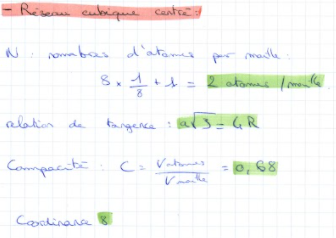 - Réseau cubique centré :
N : nombres d'atomes par maille :
8 × 1/8 + 1 = 2 atomes / maille.
relation de tangence : a√3 = 4R
Compacité : C = Vatomes / Vmaille = 0,68
Coordinance 8